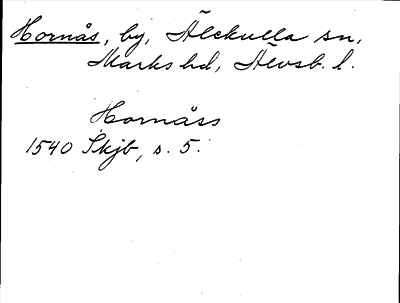 Hornås, by, Älekulla sn,
Marks hd, Älvsb. l.
Hornåss
1540 Skjb, s. 5.